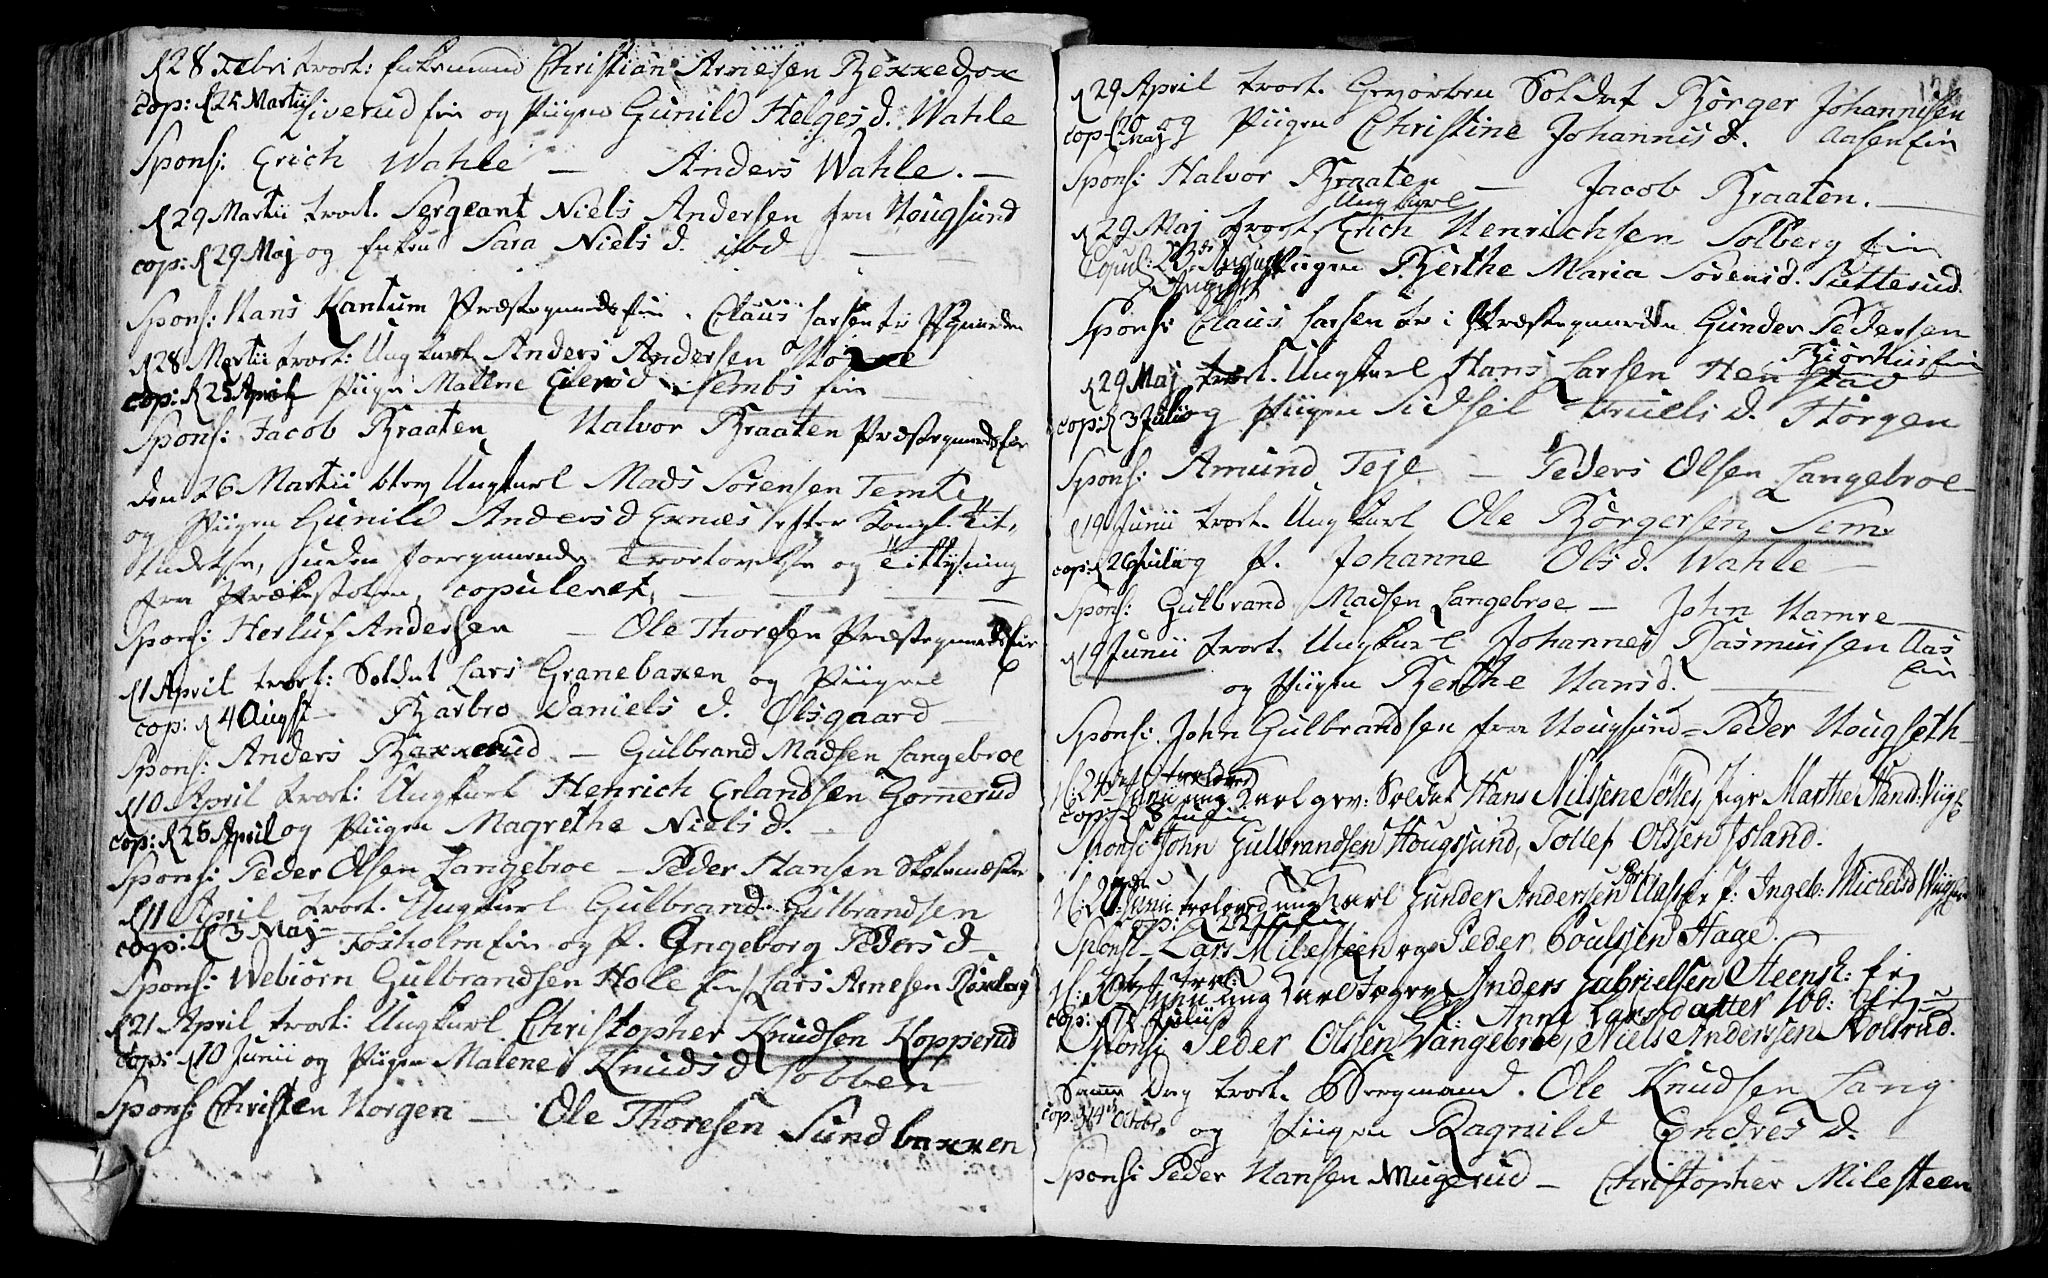 d 28 Febr: trol: Enkemand Christian Arnesen
cop: d 25 Martii Siverud Eier og Piigen Gunild Helgesd. Wahle
Spons: Erich Wahle — Anders Wahle. —
d 29 Martii trol. Sergeant Niels Andersen fra Hougsund
cop: d 29 Maj og Enken Sara Nielsd. ibd — —
Spons: Hans Præstegaards Eier. Claus Larsen
d 28 Martii trol: Ungkarl Anders Andersen
cop: d 25 April Piige Malene Eilersd. Sembs Eier
Spons: Jacob Braaten Halvor Braaten Præstegaards Eier
den 26 Martii blev Ungkarl Mads Sørensen Temte
og Piigen Gunild Andersd Exnes efter Kongl. Til-
ladelse, uden foregaaende Troelovelse og Tillysning
fra Prækestolen, copuleret. — — —
Spons: Herluf Andersen — Ole Thoresen Præstegaards Eier
d 1 April trol: Soldat Lars Granebaxen og Piigen
cop: d 4 Augst — Barbro Daniels d. Olsgaard —
Spons: Anders — Gulbrand Madsen Langebroe
d 10 April trol: Ungkarl Henrich Erlandsen Gomerud
cop: d 25 April og Piigen Magrethe Nielsd. —
Spons: Peder Olsen Langebroe — Peder Hansen Skolemæster
d 11 April trol. Ungkarl Gulbrand Gulbrandsen
cop: d 3 Maj — Foxholm Eier og P. Ingeborg Peders d —
Spons: Webiørn Gulbrandsen Holle Eier / Lars Arnesen
d 21 April trol: Ungkarl Christopher Knudsen Kopperud
cop: d 10 Junii og Piigen Malene Knudsd Lobben
Spons: Christen Horgen — Ole Thoresen Sundbaxxen
d 29 April trol. Geworben Soldat Børger Johannesen
cop d 20 Maj og Piigen Christine Johannisd. Aasen Eier
Spons: Halvor Braaten — Jacob Braaten. —
Ungkarl
d 29 Maj trol. Erich Henrichsen Solberg Eier
Copul: 23 August og Piigen Berthe Maria Sørensd. Sutterud.
Spons: Claus Larsen Præstegaarden Gunder Pedersen
Biørhus Eier
d 29 Maj trol. Ungkarl Hans Larsen Henstad
cop: d 3 Julii og Piigen Sidsel Truels d. Horgen
Spons: Amund Teje — Peders Olsen Langebroe —
d 19 Junii trol. Ungkarl Ole Børgersen Sem.
cop: d 26 Julii og P. Johanne Olsd. Wahle —
Spons: Gulbrand Madsen Langebroe — John Hamre —
d 19 Junii trol. Ungkarl Johannes Rasmussen Aas
Eier
og Piigen Berthe Hansd. —
Spons: John Gulbrandsen fra Hougsund = Peder Hougseth —
d: 24 Junii trolovet ung karl gev: Soldat Hans Nilssen Piige Marthe
cop: d 8
Sponsi John Gulbrandsen Hougssund, Tollef Olssen Island.
d: 27 Junii troloved ung karl Gunder Andersen P. Ingeb: Michelsd
cop:
Sponsi — Lars Milesteen og Peder Poulssen Hage.
Junii trol: ung karl Anders Gabrielsen Steensh: Eie
cop: Julii P: Anne Larsdatter ibd: Eie
Sponsi Peder Olssen Langebroe, Niels Anderssen Kolsrud.
Samme Dag trol. Ole Knudsen Lang
cop: d 14 Octobr. og Piigen Ragnild Endresd. —
Spons: Peder Hansen Mugerud — Christopher Milesteen